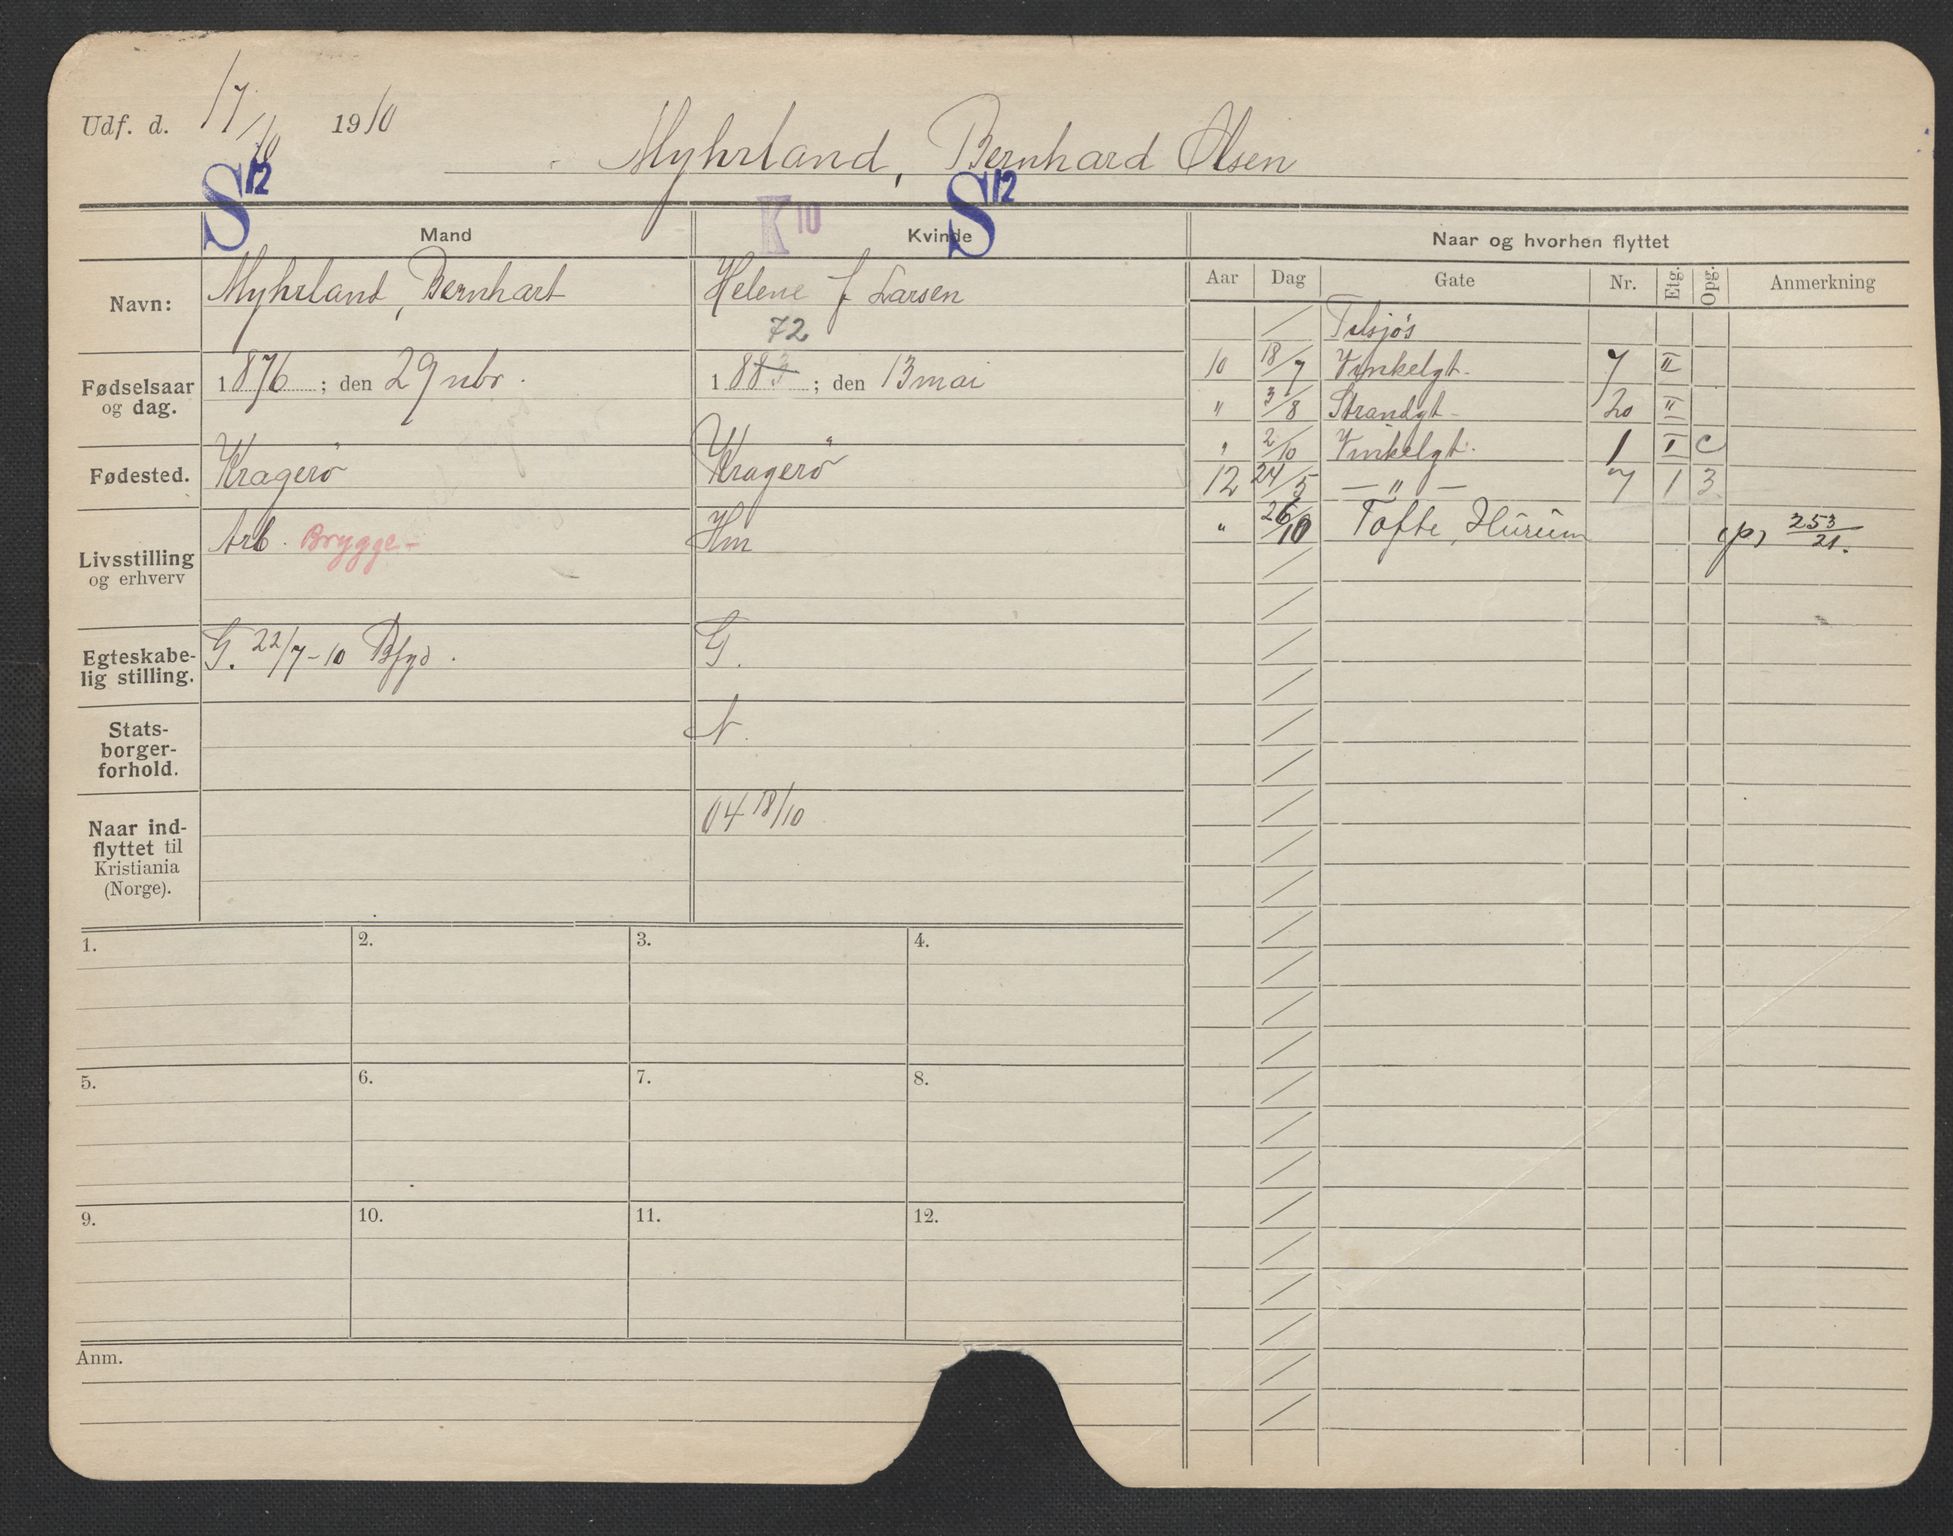 Udf. d. 17/10 1910
Myhrland, Bernhard Olsen
S12 K10 S12
Mand Kvinde Naar og hvorhen flyttet
Navn: Myhrland, Bernhart Helene f Larsen
72
Fødselsaar og dag. 1876; den 29 nbr. 1883; den 13 mai
Fødested. Kragerö Kragerö
Livsstilling og erhverv Arb. Brygge- Hm
Egteskabe-
lig stilling. G. 22/7-10 Bfgd. G.
Stats-
borger-
forhold. N.
Naar ind-
flyttet til
Kristiania
(Norge). 04 18/10
Aar Dag Gate Nr. Etg. Opg. Anmerkning
10 18/7 Vinkelgt. 7 II
" 3/8 Strandgt- 20 II
" 2/10 Vinkelgt. 1 I C
12 24/5 — " — 7 1 3
" 26/10 Tofte, Hurum (p) 253/21.
1. 2. 3. 4.
5. 6. 7. 8.
9. 10. 11. 12.
Anm.